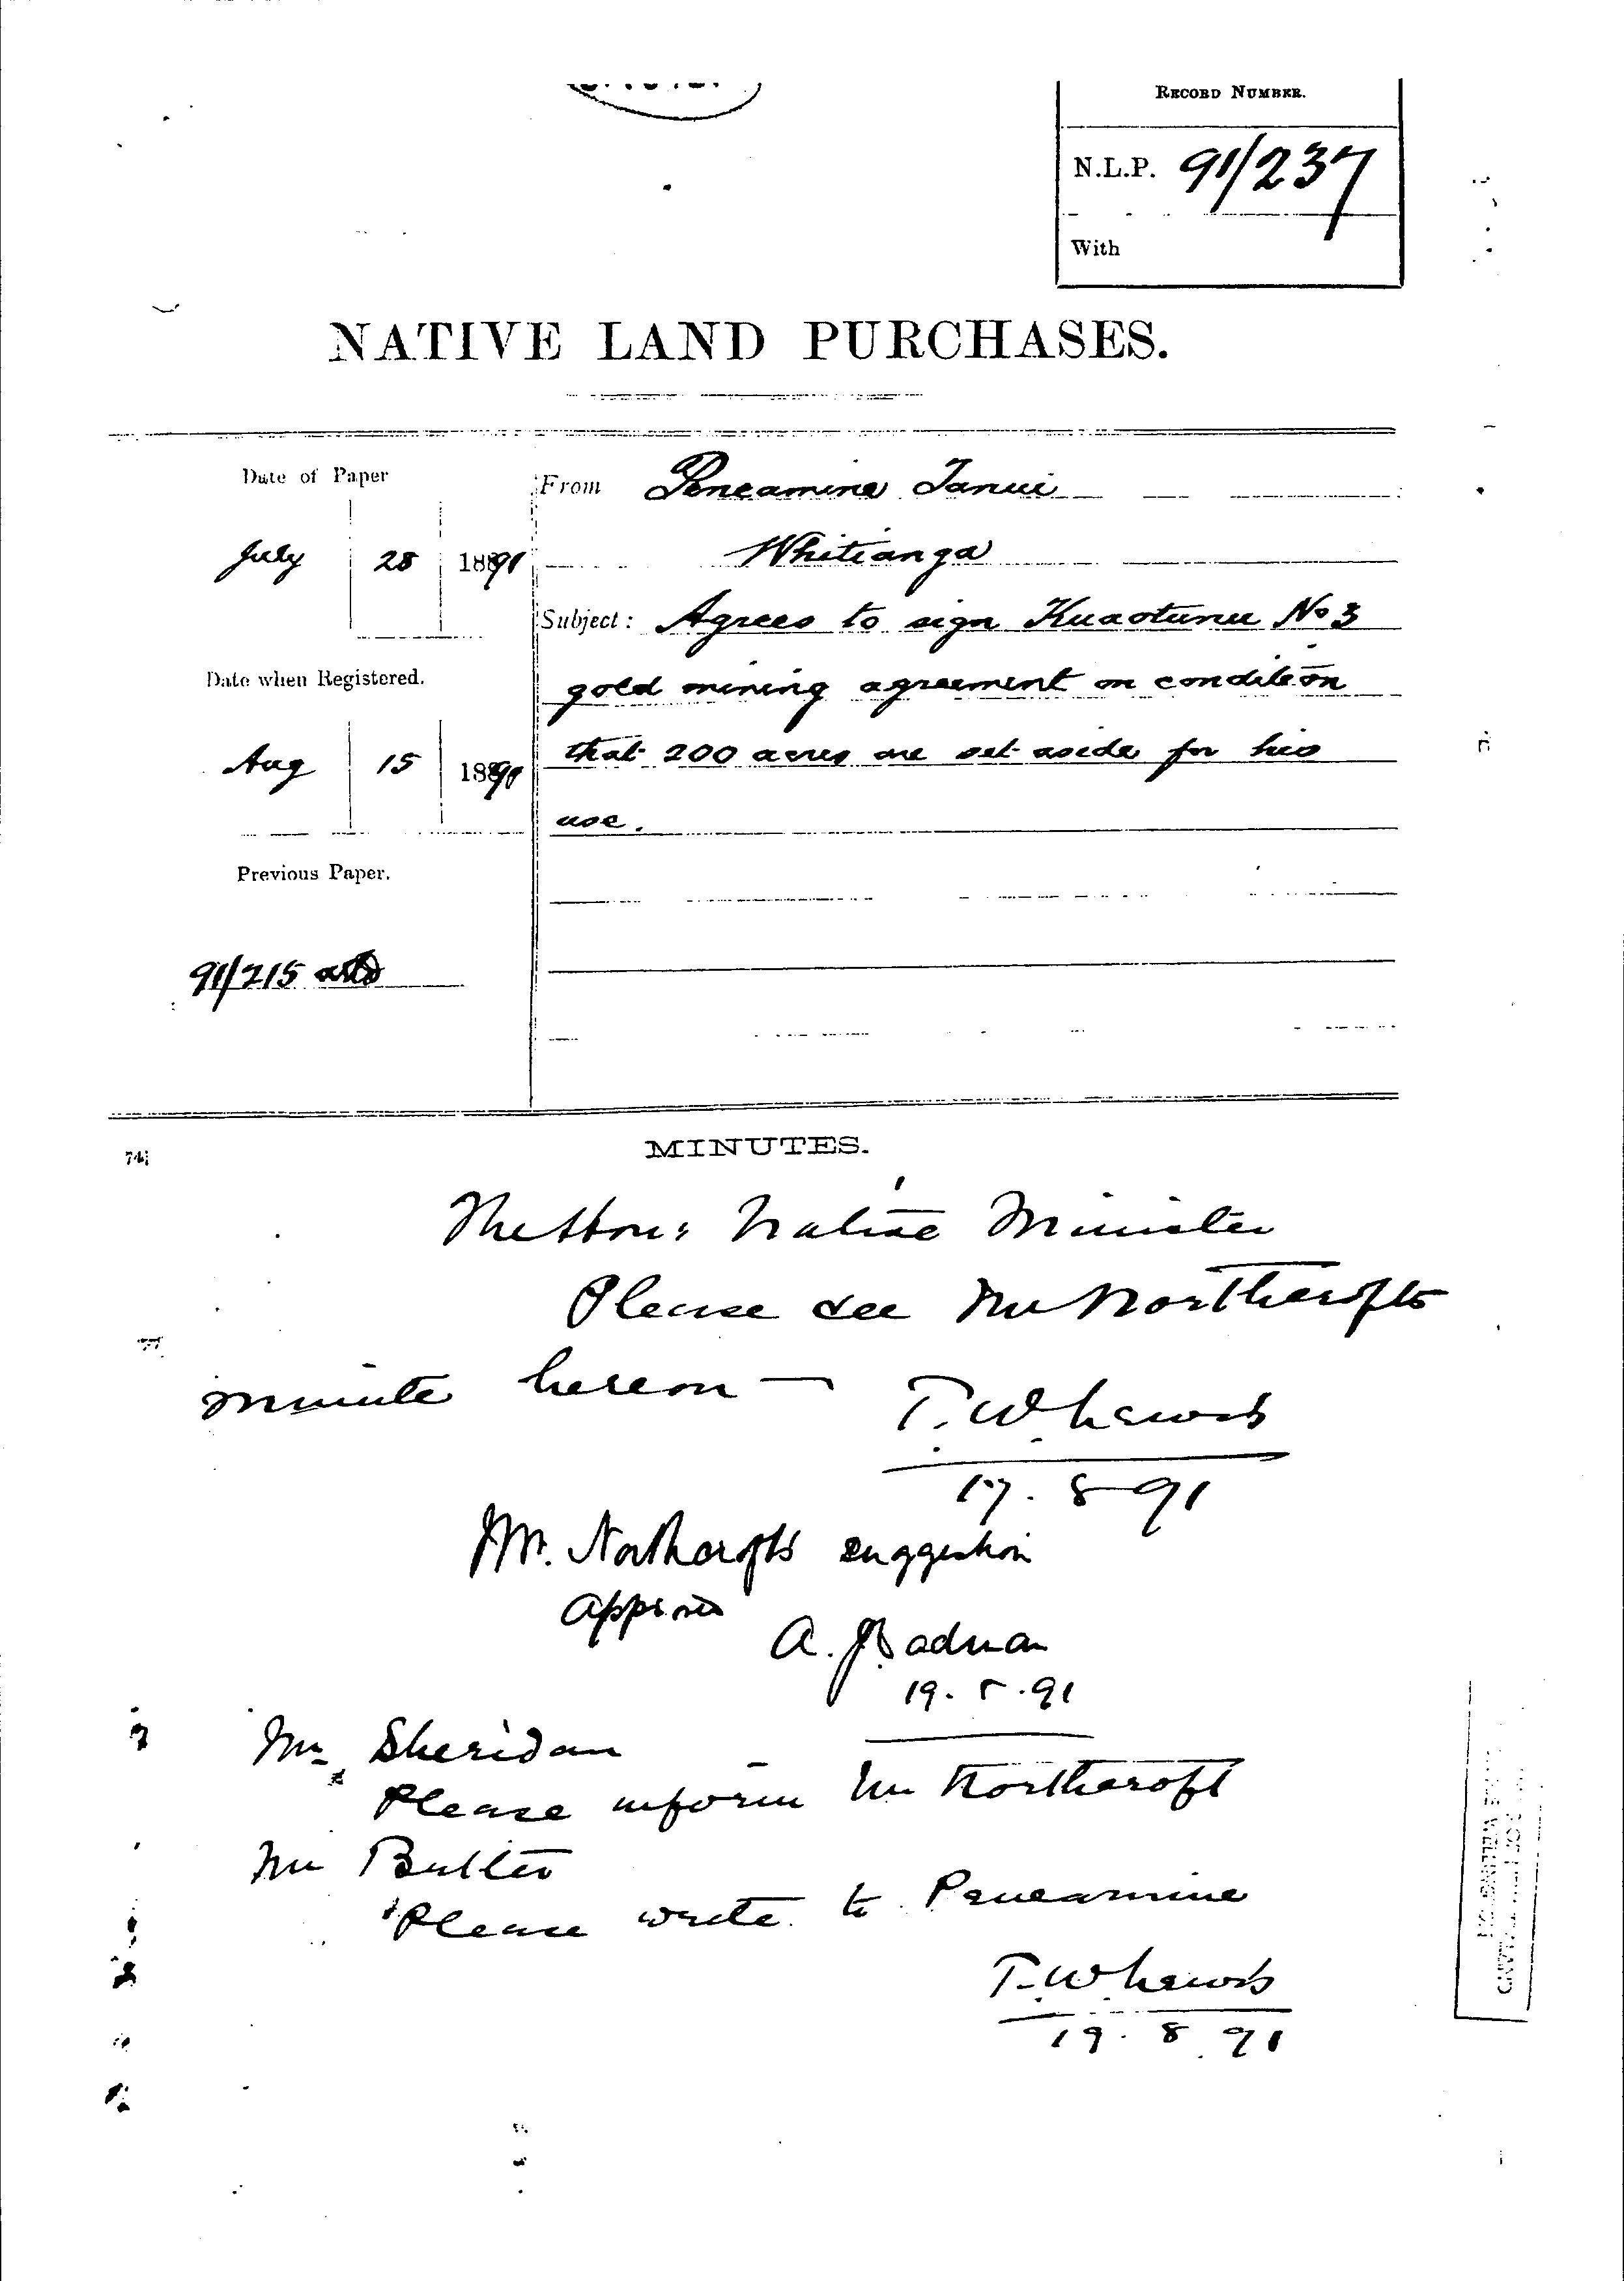 RECORD NUMBER.
N.L.P. 91/237
With
NATIVE LAND PURCHASES.
Date of Paper
July 28 1891
From Peneamine Tanui
Whitianga
Subject: Agrees to sign Kuaotunu No 3
gold mining agreement on condition
that 200 acres are set aside for his
use.
Date when Registered.
Aug 15 1891
Previous Paper.
91/215
MINUTES.
The Hon: Native Minister
Please see Mr Northcrofts
minute hereon —
T. W. Lewis
17. 8 91
Mr. Northcrofts suggestion
approved
A. J. Cadman
19. 8. 91
Mr Sheridan
Please inform Mr Northcroft
Mr Butler
Please write to Peneamine
T. W. Lewis
19. 8 91